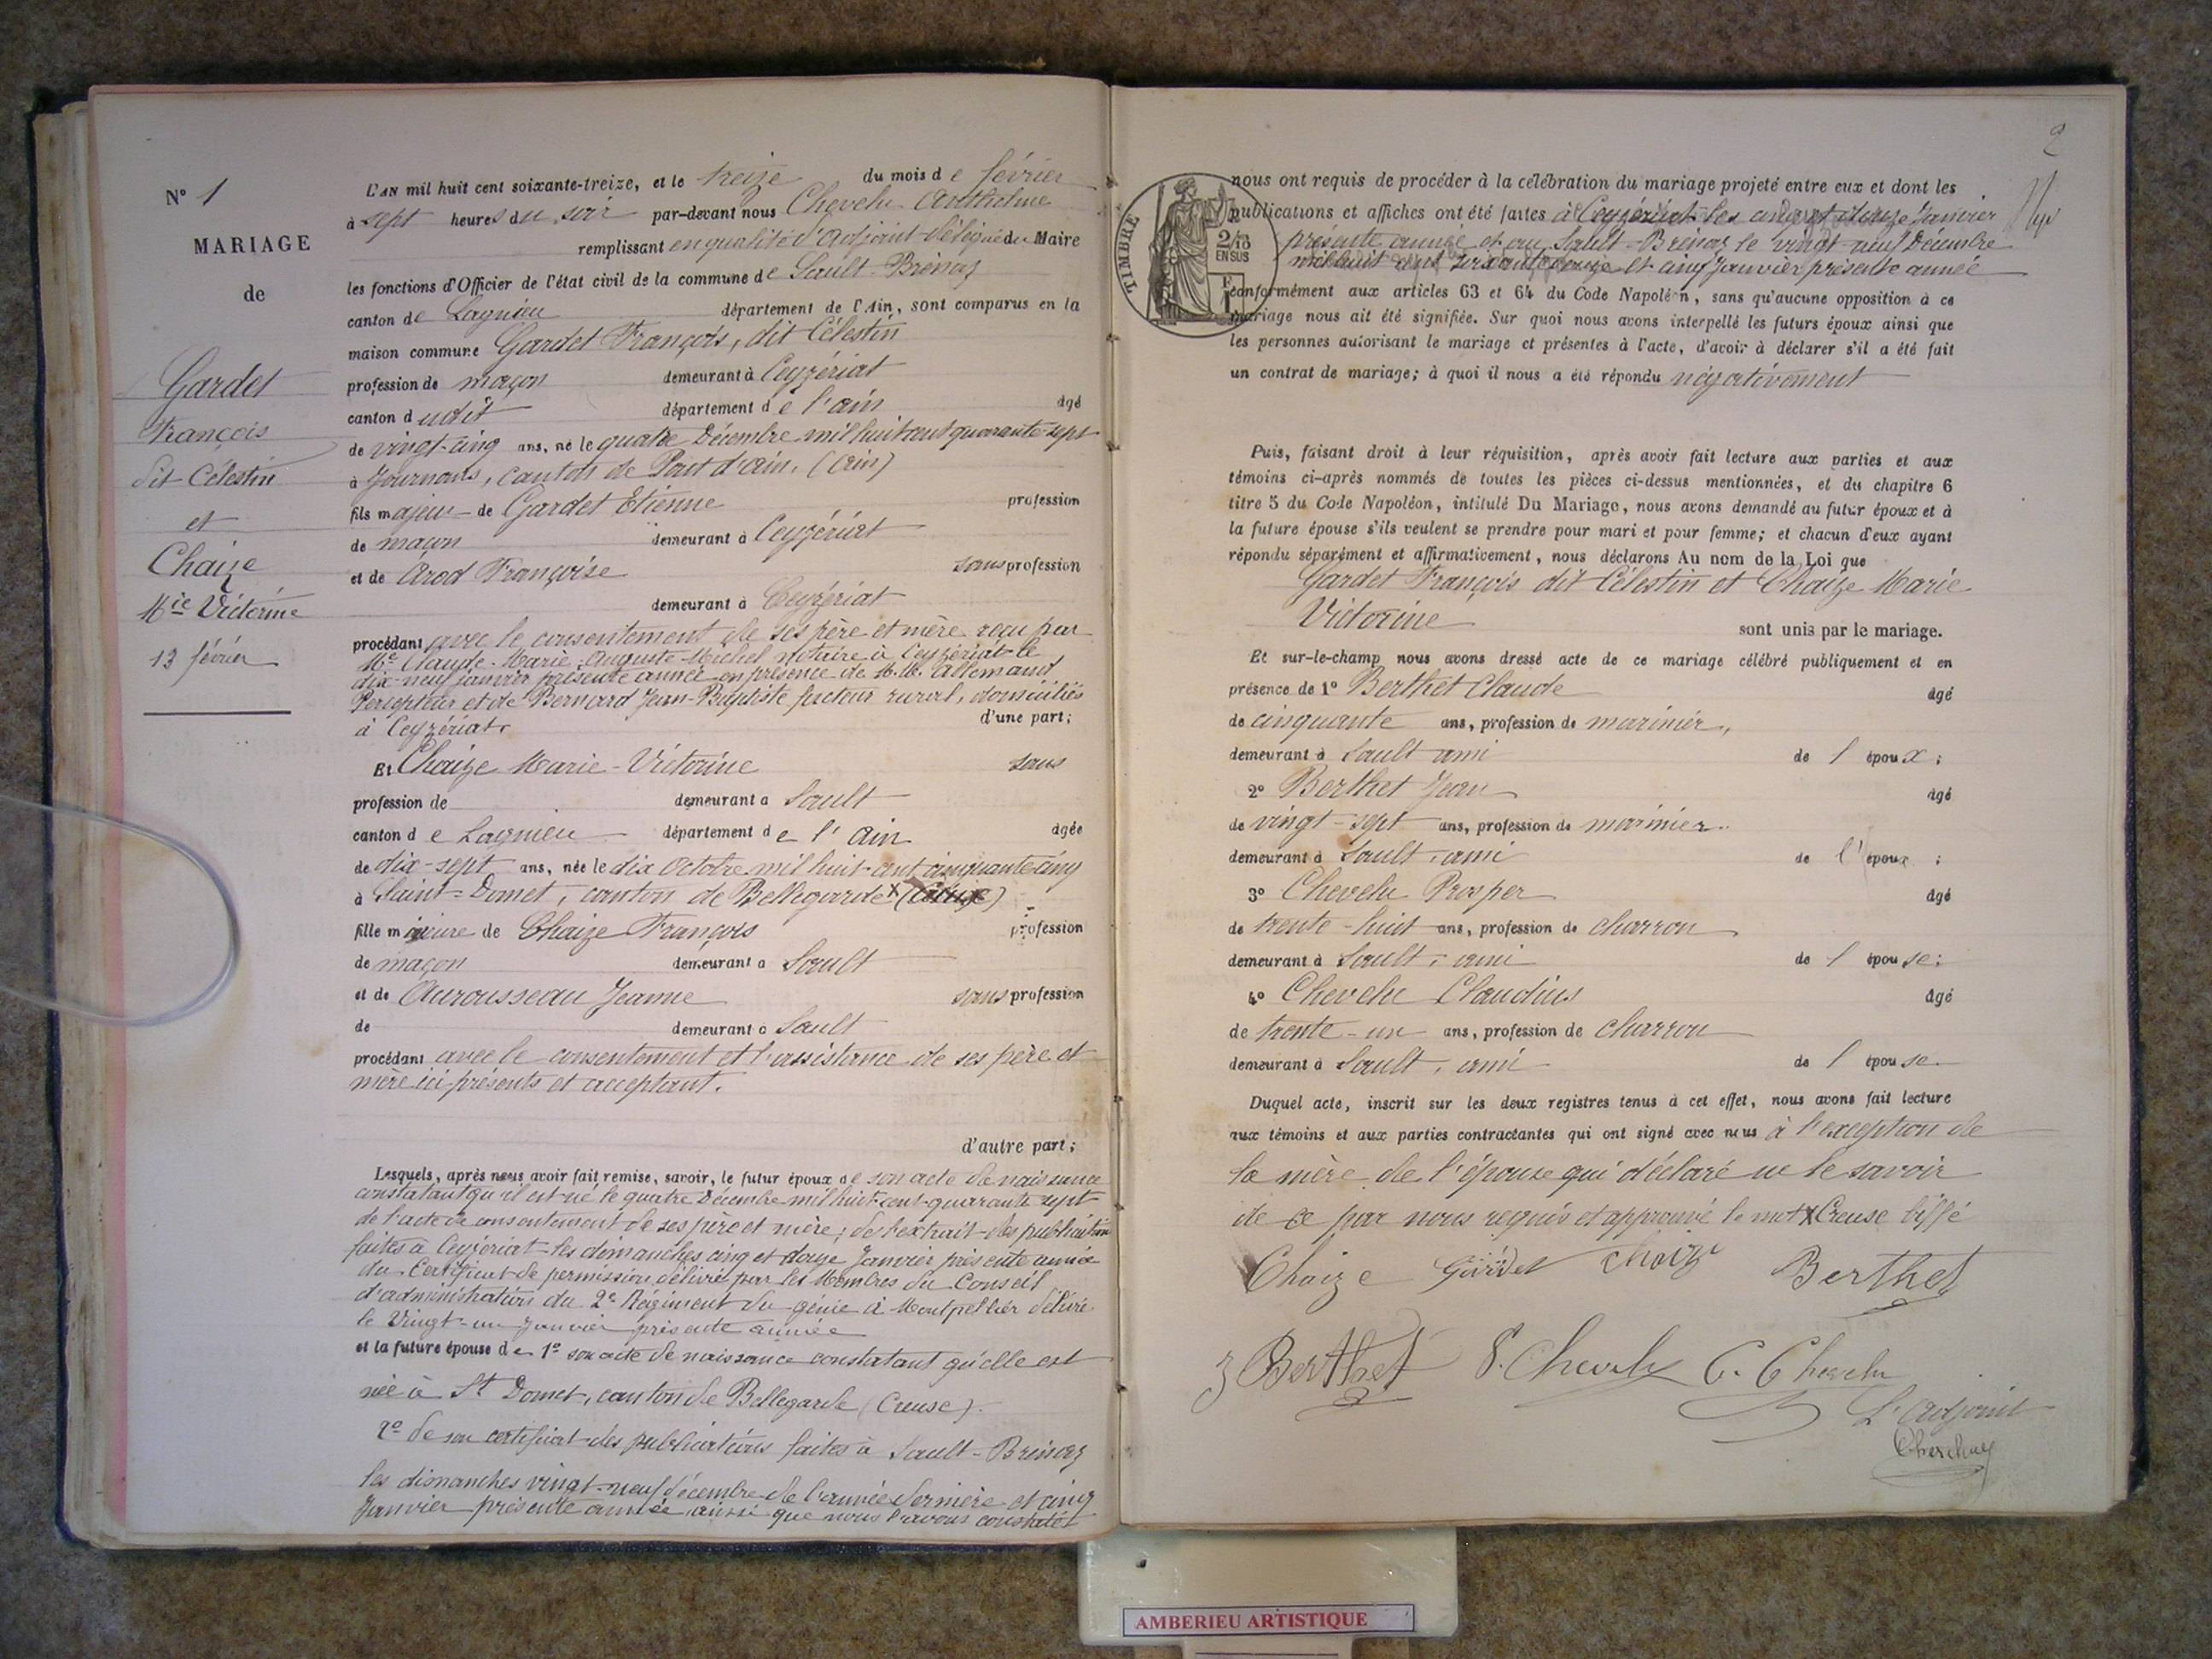 N° 1
MARIAGE
de
Gardet
François
dit Célestin
et
Chaize
Mie Victorine
13 février
L'AN mil huit cent soixante-treize, et le treize du mois de février
à sept heures du soir par-devant nous Chevelu Anthelme
remplissant en qualité d'Adjoint délégué du Maire
les fonctions d'Officier de l'état civil de la commune de Sault-Brénaz
canton de Lagnieu département de l'Ain, sont comparus en la
maison commune Gardet François, dit Célestin
profession de maçon demeurant à Ceyzériat
canton dudit département de l'ain âgé
de vingt-cinq ans, né le quatre Décembre mil huit cent quarante-sept
à Journans, canton de Pont d'ain, (Ain)
fils majeur de Gardet Etienne profession
de maçon demeurant à Ceyzériat
et de Arod Françoise sans profession
demeurant à Ceyzériat
procédant avec le consentement de ses père et mère reçu par
Me Claude-Marie-Auguste-Michel notaire à Ceyzériat le
dix-neuf janvier présente année en présence de M.M. Allemand
Percepteur et de Bernard Jean-Baptiste facteur rural, domiciliés
à Ceyzériat. d'une part;
Et Chaize Marie-Victorine sans
profession de demeurant à Sault
canton de Lagnieu département de l'Ain âgée
de dix-sept ans, née le dix Octobre mil huit-cent cinquante cinq
à Saint-Domet, canton de Bellegarde X (Creuse)
fille mineure de Chaize François profession
de maçon demeurant à Sault
et de Aurousseau Jeanne sans profession
de demeurant à Sault
procédant avec le consentement et l'assistance de ses père et
mère ici présents et acceptant.
d'autre part;
Lesquels, après nous avoir fait remise, savoir, le futur époux de son acte de naissance
constatant qu'il est né le quatre Décembre mil huit-cent-quarante sept
de l'acte de consentement de ses père et mère; de l'extrait des publications
faites à Ceyzériat les dimanches cinq et douze Janvier présente année
du Certificat de permission délivré par les Membres du Conseil
d'administration du 2e Régiment du génie à Montpellier délivré
le Vingt-un Janvier présente année
et la future épouse de 1° son acte de naissance constatant qu'elle est
née à St Domet, canton de Bellegarde (Creuse).
2° de son certificat des publications faites à Sault-Brénaz
les dimanches vingt-neuf décembre de l'année dernière et cinq
Janvier présente année ainsi que nous l'avons constaté
2
TIMBRE
2/10
EN SUS
nous ont requis de procéder à la célébration du mariage projeté entre eux et dont les
publications et affiches ont été faites à Ceyzériat les cinq et douze Janvier
présente année et au Sault-Brénaz le vingt-neuf Décembre
mil huit cent soixante douze et cinq Janvier présente année
conformément aux articles 63 et 64 du Code Napoléon, sans qu'aucune opposition à ce
mariage nous ait été signifiée. Sur quoi nous avons interpellé les futurs époux ainsi que
les personnes autorisant le mariage et présentes à l'acte, d'avoir à déclarer s'il a été fait
un contrat de mariage; à quoi il nous a été répondu négativement
Puis, faisant droit à leur réquisition, après avoir fait lecture aux parties et aux
témoins ci-après nommés de toutes les pièces ci-dessus mentionnées, et du chapitre 6
titre 5 du Code Napoléon, intitulé Du Mariage, nous avons demandé au futur époux et à
la future épouse s'ils veulent se prendre pour mari et pour femme; et chacun d'eux ayant
répondu séparément et affirmativement, nous déclarons Au nom de la Loi que
Gardet François dit Célestin et Chaize Marie
Victorine sont unis par le mariage.
Et sur-le-champ nous avons dressé acte de ce mariage célébré publiquement et en
présence de 1° Berthet Claude âgé
de cinquante ans, profession de marinier,
demeurant à Sault ami de l'époux;
2° Berthet Jean âgé
de vingt-sept ans, profession de marinier.
demeurant à Sault, ami de l'époux;
3° Chevelu Prosper âgé
de trente-huit ans, profession de charron
demeurant à Sault, ami de l'épouse;
4° Chevelu Claudius âgé
de trente-un ans, profession de charron
demeurant à Sault, ami de l'épouse
Duquel acte, inscrit sur les deux registres tenus à cet effet, nous avons fait lecture
aux témoins et aux parties contractantes qui ont signé avec nous à l'exception de
la mère de l'épouse qui déclaré ne le savoir
de ce par nous requis et approuvé le mot X Creuse biffé
Chaize Gardet Chaize Berthet
J Berthet P. Chevelu C. Chevelu
L'adjoint
Chevelu
AMBERIEU ARTISTIQUE